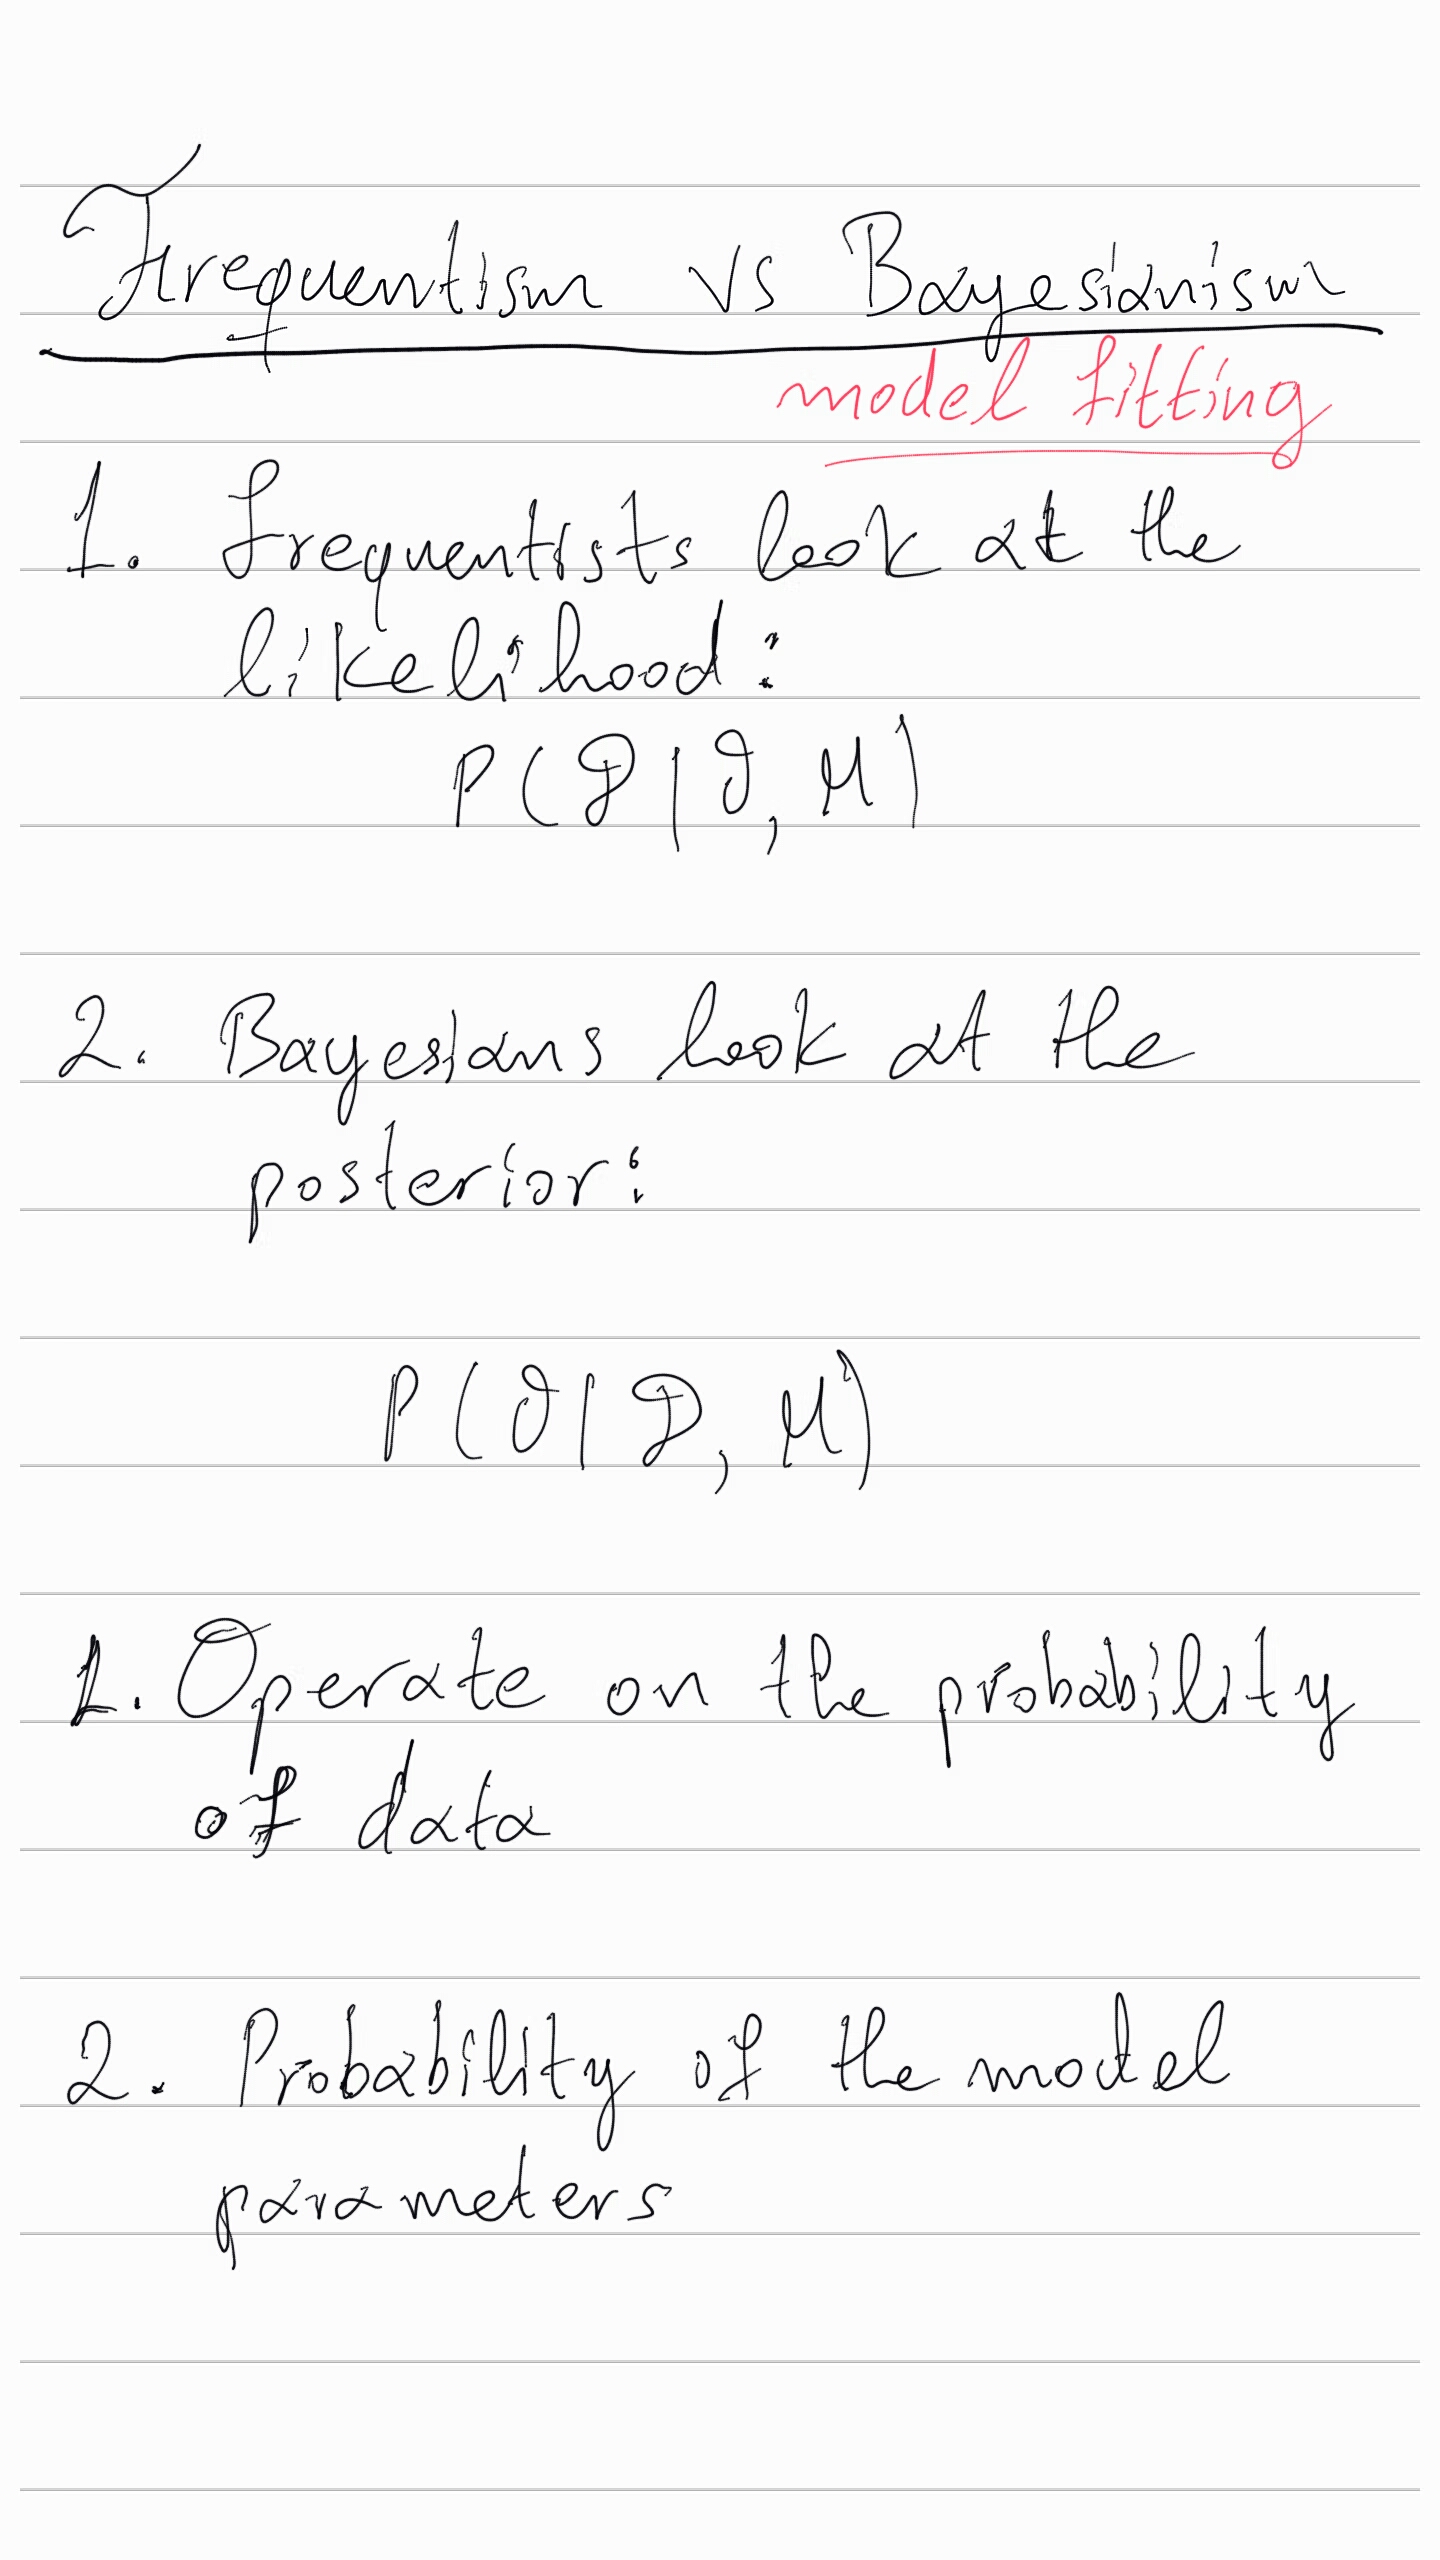 Frequentism vs Bayesianism
model fitting
1. frequentists look at the
likelihood:
P(D|θ, M)
2. Bayesians look at the
posterior:
P(θ|D, M)
1. Operate on the probability
of data
2. Probability of the model
parameters